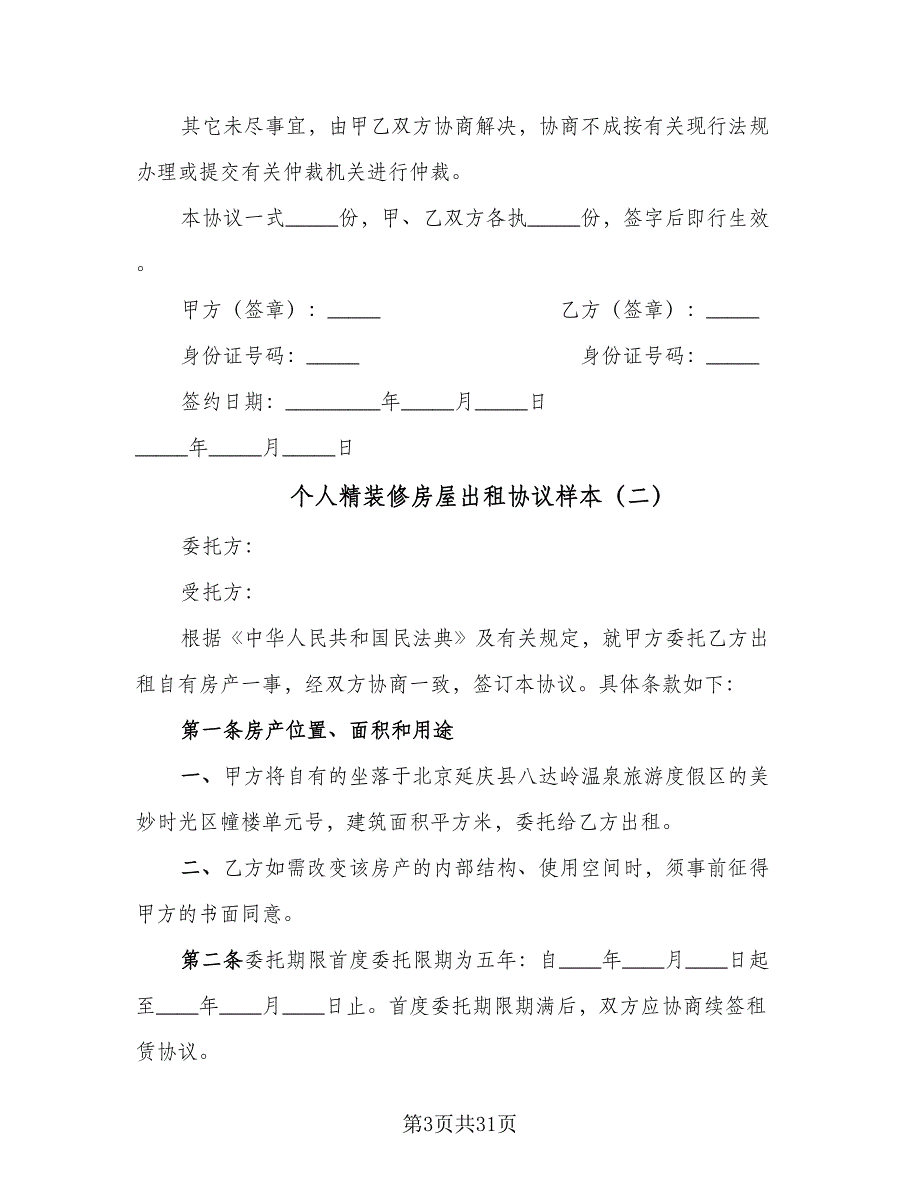 其它未尽事宜，由甲乙双方协商解决，协商不成按有关现行法规
办理或提交有关仲裁机关进行仲裁。
本协议一式_____份，甲、乙双方各执_____份，签字后即行生效
。
甲方（签章）：_____ 乙方（签章）：_____
身份证号码：_____ 身份证号码：_____
签约日期：_________年_____月_____日
_____年_____月_____日
个人精装修房屋出租协议样本（二）
委托方：
受托方：
根据《中华人民共和国民法典》及有关规定，就甲方委托乙方出
租自有房产一事，经双方协商一致，签订本协议。具体条款如下：
第一条房产位置、面积和用途
一、甲方将自有的坐落于北京延庆县八达岭温泉旅游度假区的美
妙时光区幢楼单元号，建筑面积平方米，委托给乙方出租。
二、乙方如需改变该房产的内部结构、使用空间时，须事前征得
甲方的书面同意。
第二条委托期限首度委托限期为五年：自____年____月____日起
至____年____月____日止。首度委托期限期满后，双方应协商续签租
赁协议。
第3页共31页